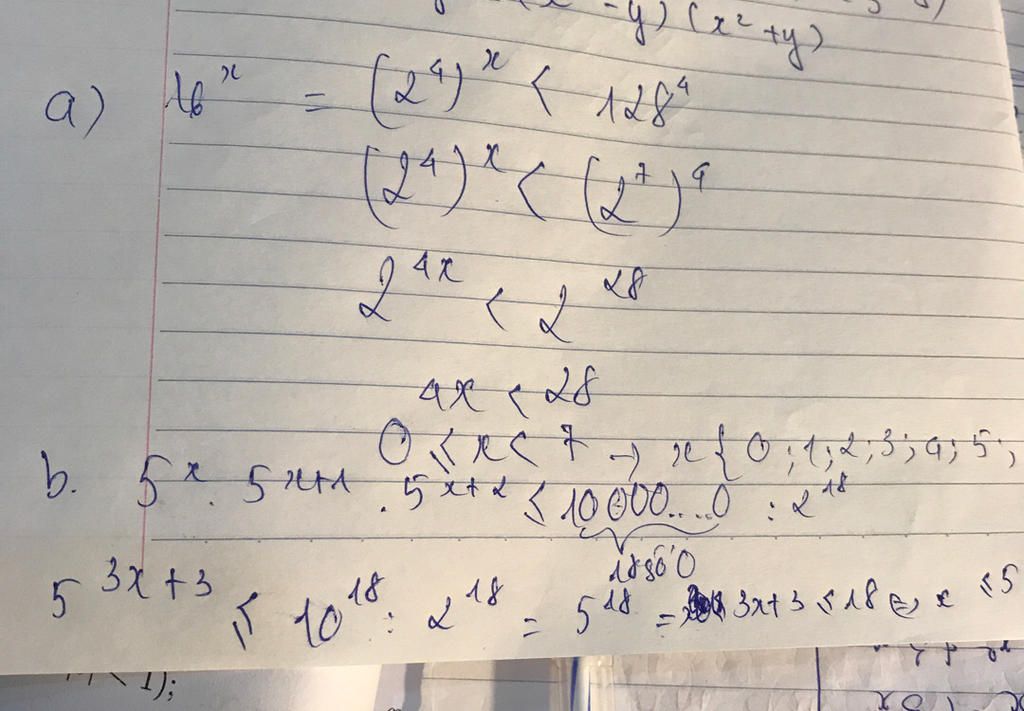 -y) (x² + y)
a) 16^x = (2^4)^x < 128^4
(2^4)^x < (2^7)^4
2^4x < 2^28
4x < 28
0 ≤ x < 7 → x { 0 ; 1 ; 2 ; 3 ; 4 ; 5 ;
b. 5^x . 5^x+1 . 5^x+2 ≤ 10000....0 : 2^18
18 số 0
5^3x+3 ≤ 10^18 : 2^18 = 5^18 = 3x+3 ≤ 18 => x ≤ 5
1);